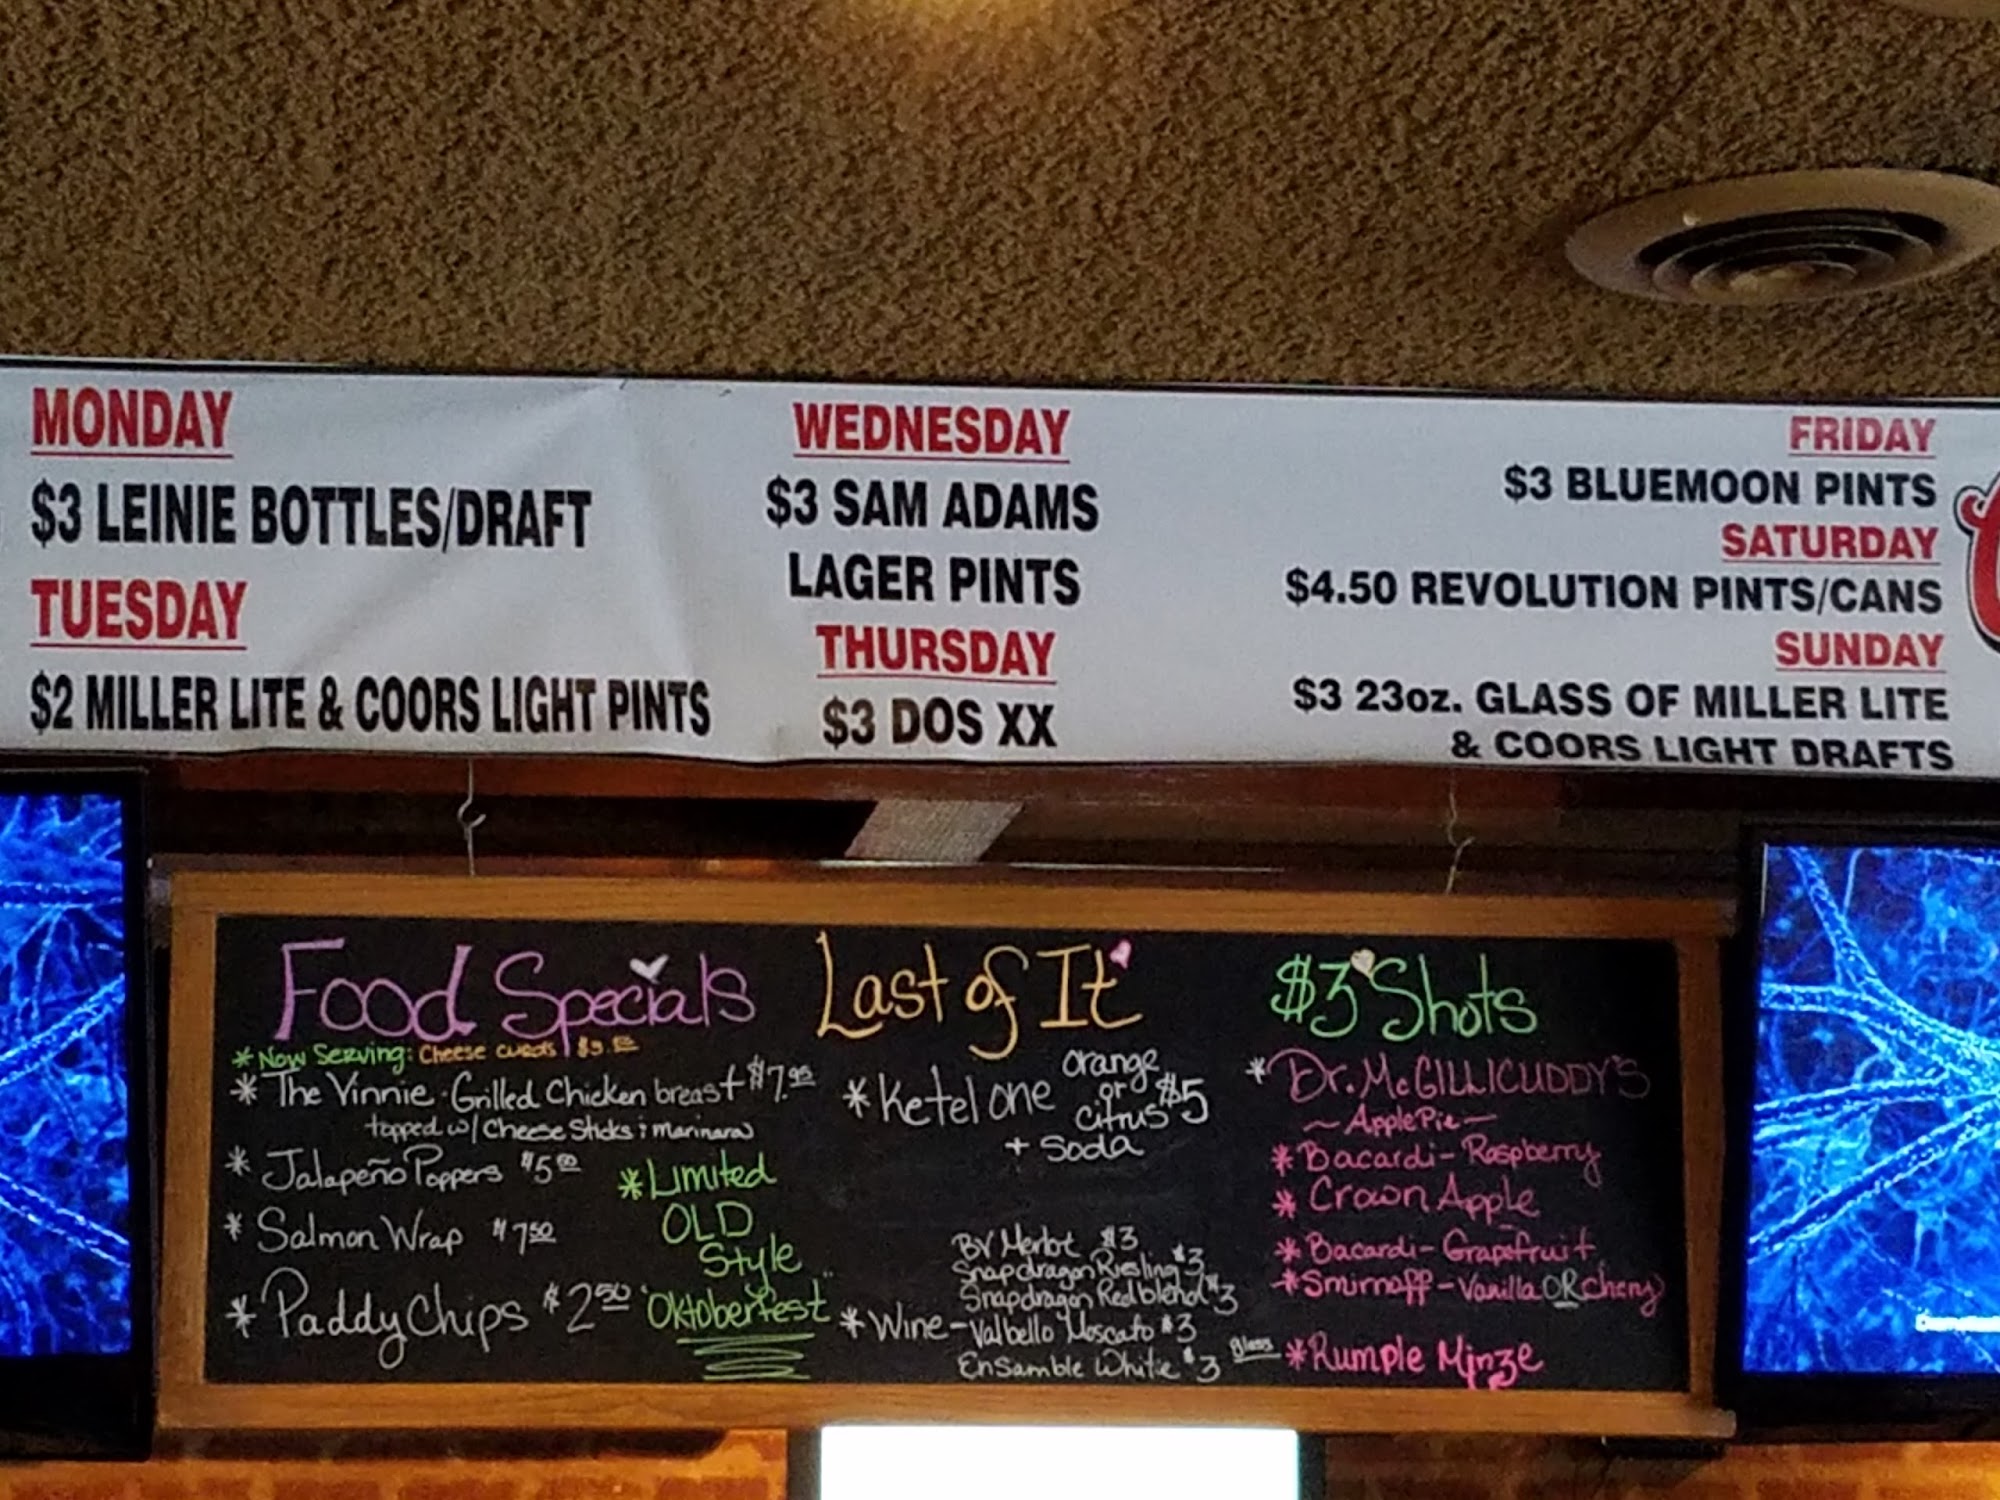 MONDAY
$3 LEINIE BOTTLES/DRAFT
TUESDAY
$2 MILLER LITE & COORS LIGHT PINTS
WEDNESDAY
$3 SAM ADAMS
LAGER PINTS
THURSDAY
$3 DOS XX
FRIDAY
$3 BLUEMOON PINTS
SATURDAY
$4.50 REVOLUTION PINTS/CANS
SUNDAY
$3 23oz. GLASS OF MILLER LITE
& COORS LIGHT DRAFTS
Food Specials
*Now Serving: Cheese curds
* The Vinnie - Grilled Chicken breast $7.95
topped w/ Cheese Sticks & marinara
* Jalapeño Poppers $5.00
* Salmon Wrap $7.50
* Paddy Chips $2.50
*Limited
OLD
Style
"Oktoberfest"
Last of It
*Ketel one orange or citrus $5
+ Soda
BV Merlot $3
Snapdragon Riesling $3
Snapdragon Redblend $3
*Wine - Valbello Moscato $3
Ensamble White $3 Glass
$3 Shots
*Dr. McGILLICUDDY'S
~ Apple Pie ~
*Bacardi - Raspberry
* Crown Apple
*Bacardi - Grapefruit
*Smirnoff - Vanilla OR cherry
*Rumple Minze